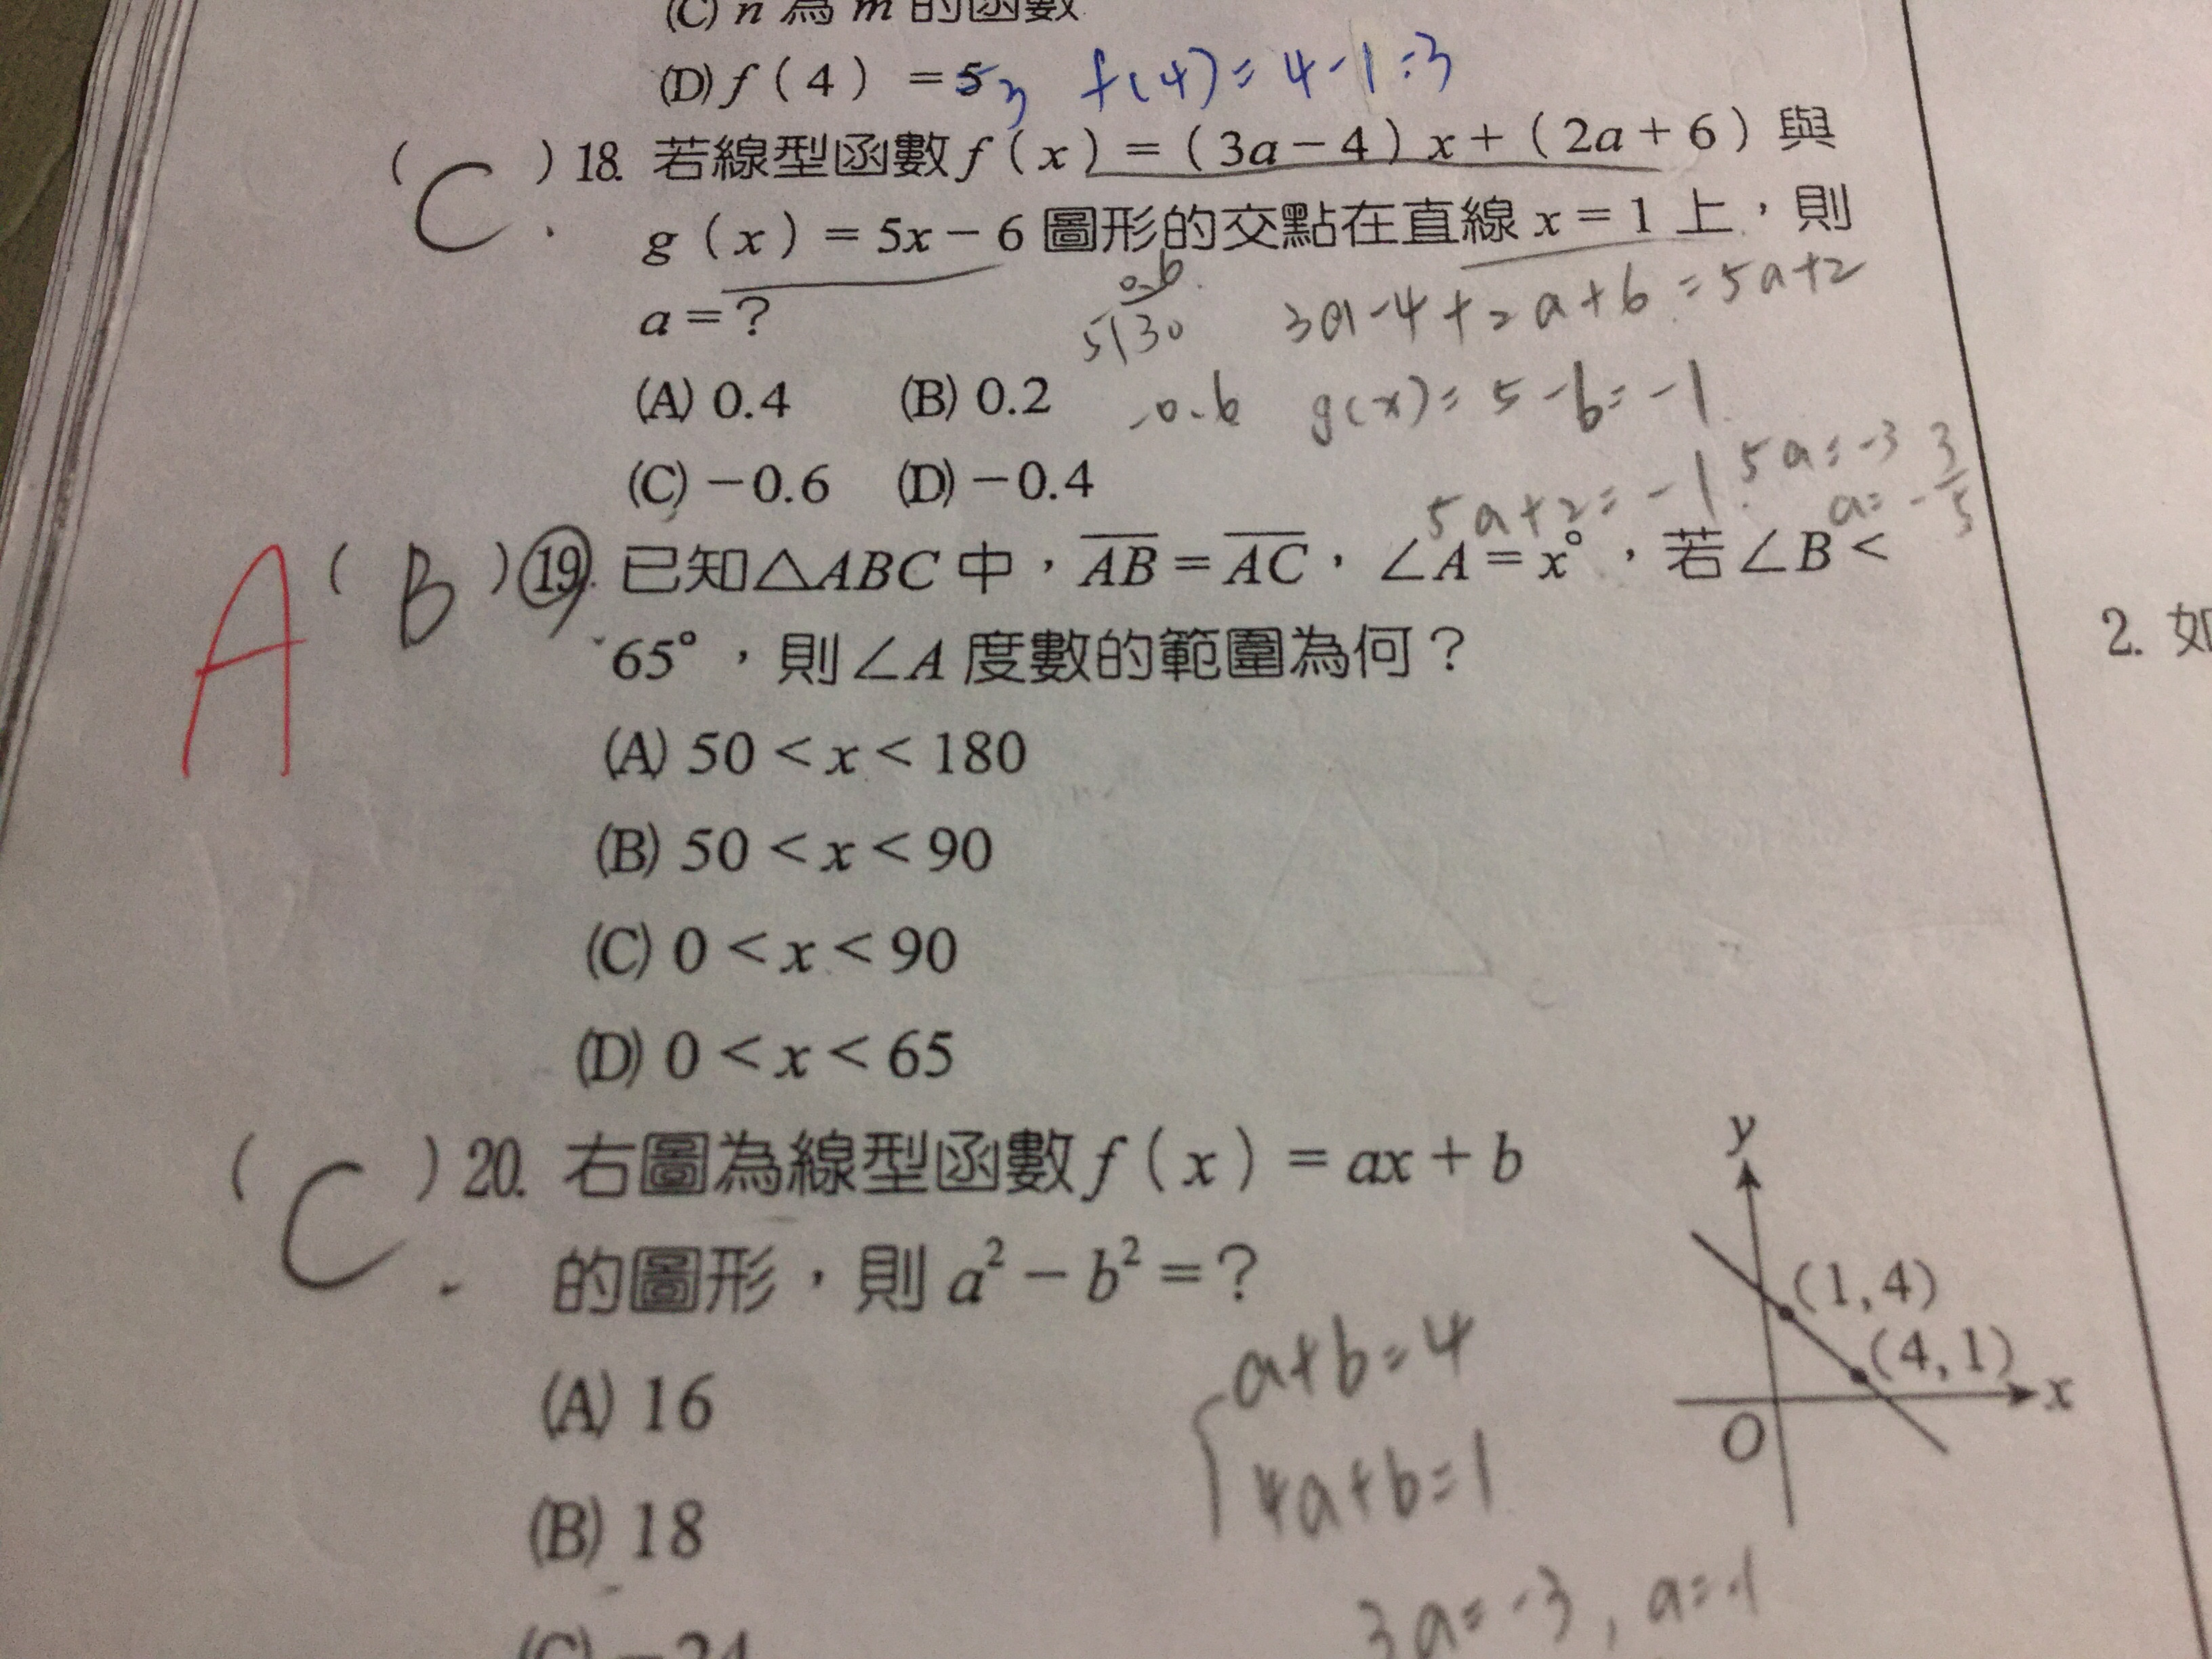 (C) n 為 m 的函數
(D) f(4) = 5 3 f(4) = 4-1=3
( C ) 18. 若線型函數 f(x) = (3a-4)x+(2a+6) 與
g(x) = 5x-6 圖形的交點在直線 x=1 上，則
a=?
0.6
5)30
3a-4+2a+6=5a+2
(A) 0.4 (B) 0.2
-0.6 g(x)=5-6=-1
(C) -0.6 (D) -0.4
5a+2=-1 5a=-3 a=-3/5
A ( B ) 19. 已知△ABC 中，AB=AC，∠A=x°，若∠B<
65°，則∠A 度數的範圍為何？
(A) 50<x<180
(B) 50<x<90
(C) 0<x<90
(D) 0<x<65
( C ) 20. 右圖為線型函數 f(x) = ax+b
的圖形，則 a²-b²=?
y
(1,4)
(4,1)
x
O
(A) 16
a+b=4
4a+b=1
(B) 18
3a=-3, a=-1
(C) -24
2. 如